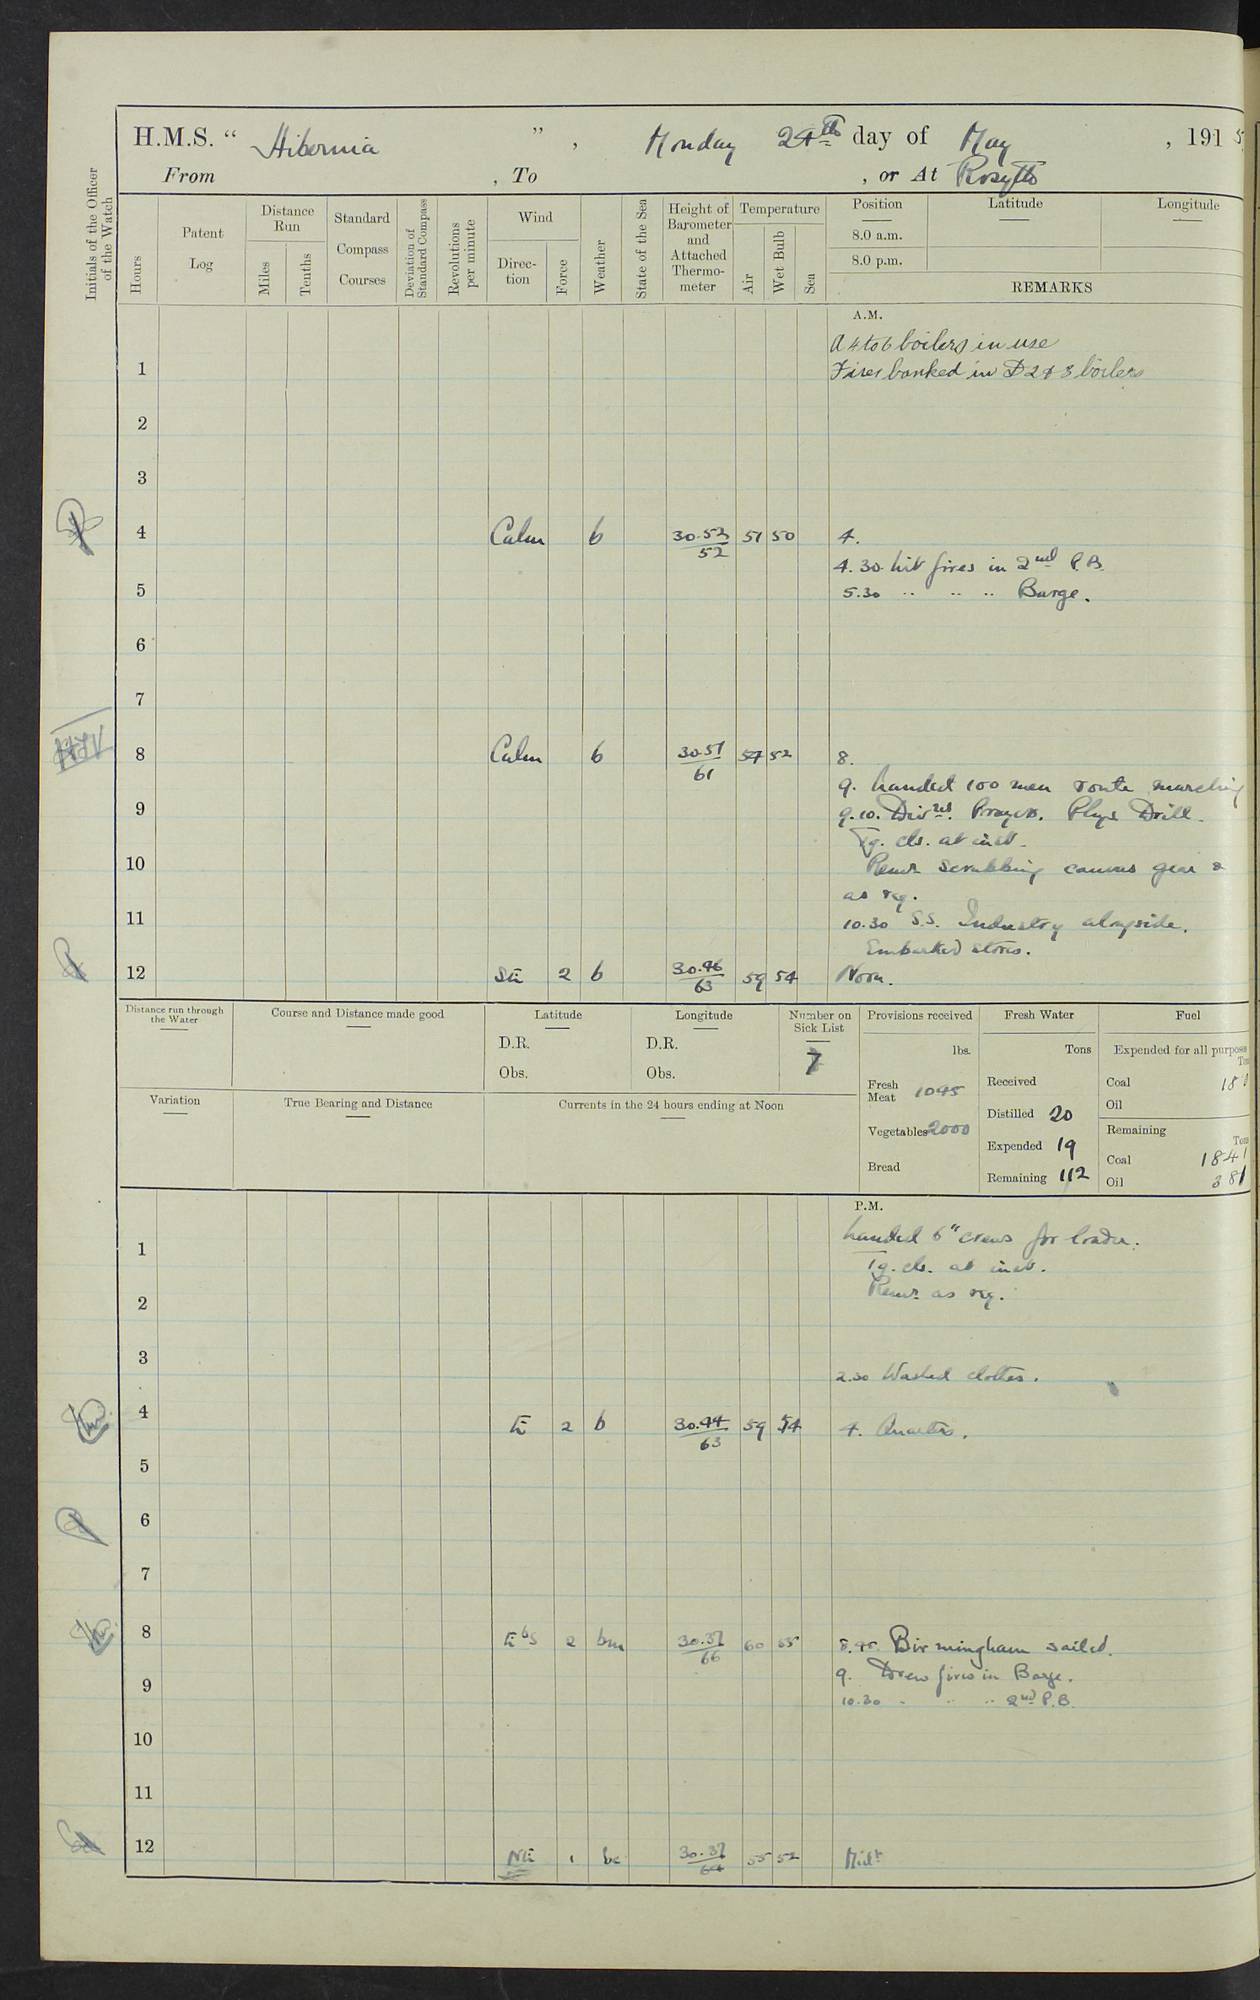 H.M.S. “ Hibernia ” , Monday 24th day of May , 1915
From , To , or At Rosyth
Initials of the Officer of the Watch
Hours
Patent Log
Distance Run
Miles
Tenths
Standard Compass Courses
Deviation of Standard Compass
Revolutions per minute
Wind
Direction
Force
Weather
State of the Sea
Height of Barometer and Attached Thermometer
Temperature
Air
Wet Bulb
Sea
Position Latitude Longitude
8.0 a.m.
8.0 p.m.
REMARKS
A.M.
A 4 to 6 boilers in use
1 Fires banked in D 2 & 3 boilers
2
3
4 Calm b 30.53/52 51 50 4.
4.30 lit fires in 2nd P.B.
5 5.30 " " " Barge.
6
7
8 Calm b 30.51/61 54 52 8.
9. Landed 100 men route marching
9 9.10. Divns. Prayers. Phys Drill.
Tg. cls. at inst.
10 Remr. scrubbing canvas gear &
as req.
11 10.30 S.S. Industry alongside.
Embarked stores.
12 SE 2 b 30.46/63 59 54 Noon.
Distance run through the Water
Course and Distance made good
Latitude
D.R.
Obs.
Longitude
D.R.
Obs.
Number on Sick List
7
Provisions received
lbs.
Fresh Meat 1095
Vegetables 2000
Bread
Fresh Water
Tons
Received
Distilled 20
Expended 19
Remaining 112
Fuel
Expended for all purposes
Coal
Oil
Remaining
Tons
Coal 1841
Oil 381
Variation
True Bearing and Distance
Currents in the 24 hours ending at Noon
P.M.
Landed 6" crews for loader.
1 Tg. cls. at inst.
2 Remr. as req.
3 2.30 Washed clothes.
4 E 2 b 30.44/63 59 54 4. Quarters.
5
6
7
8 EbS 2 bm 30.37/66 60 55 8.45. Birmingham sailed.
9 9. Drew fires in Barge.
10.30 " " " 2nd P.B.
10
11
12 NE 1 bc 30.37/64 55 52 Midt